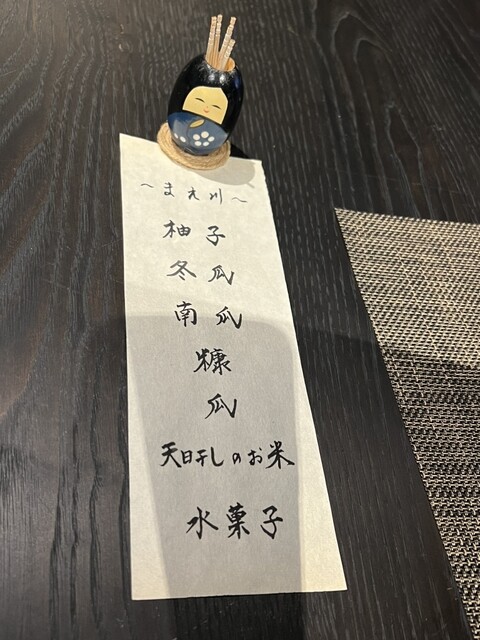 ~まえ川~
柚子
冬瓜
南瓜
糠
瓜
天日干しのお米
水菓子